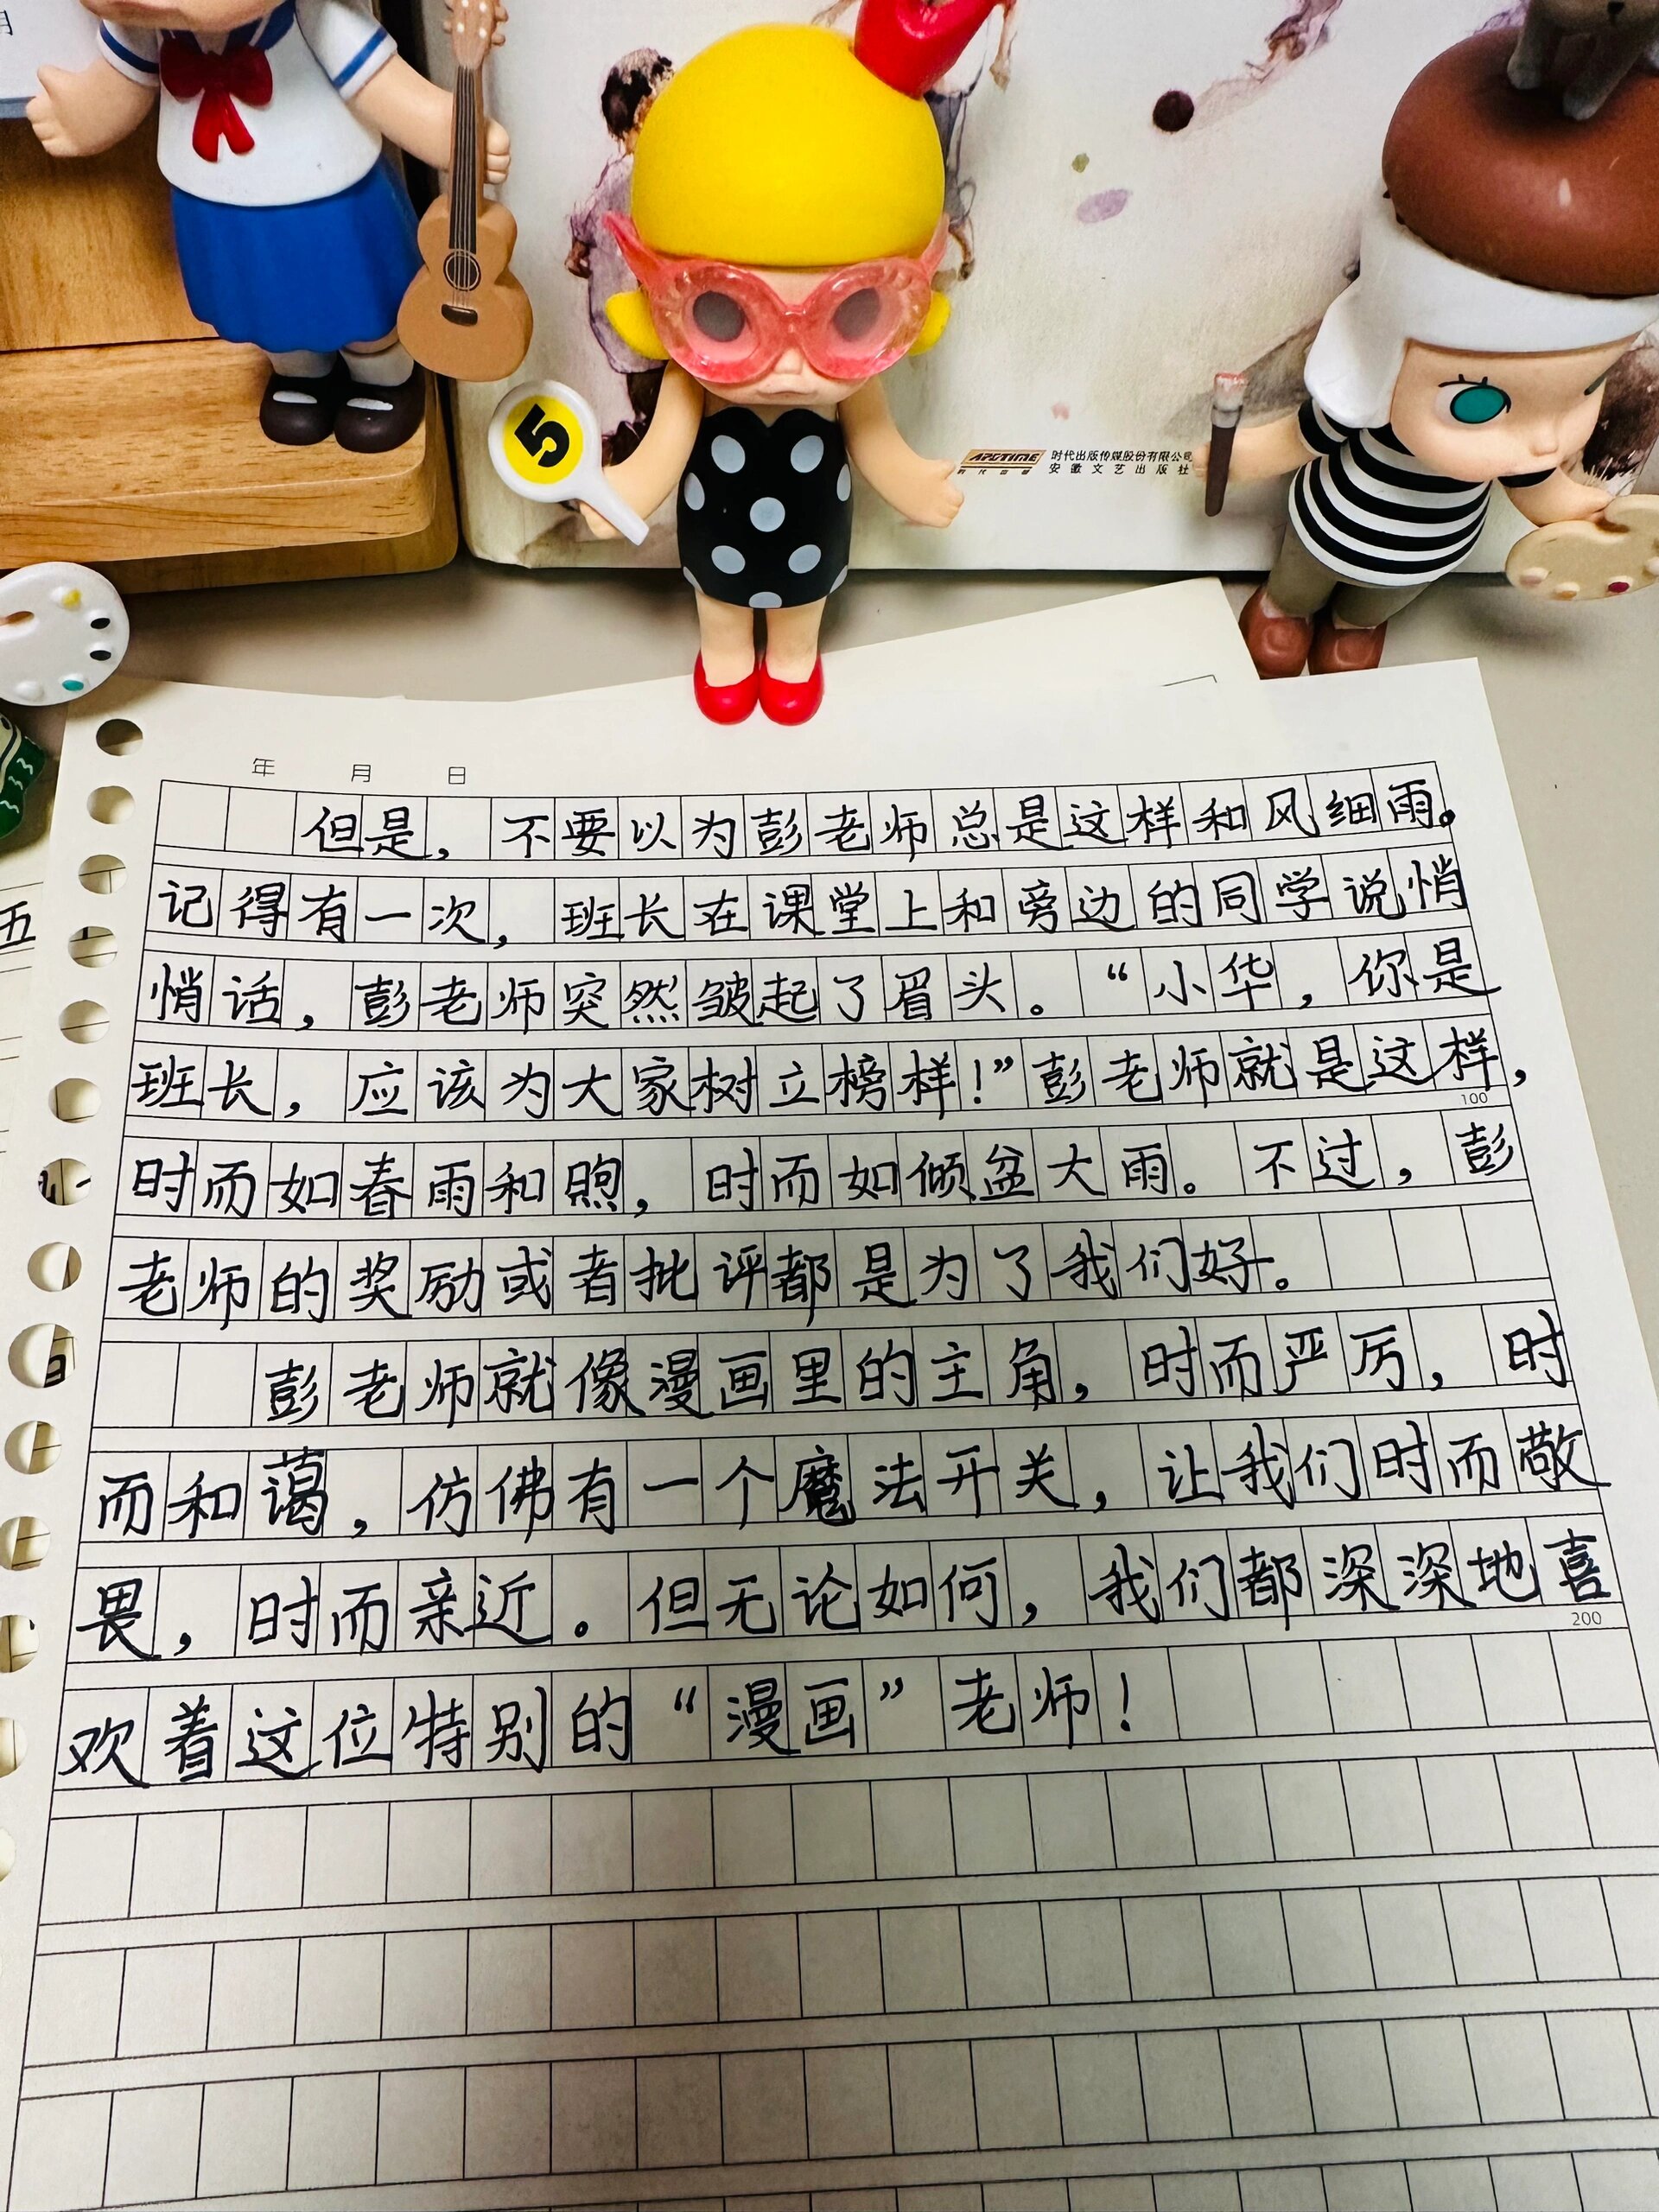 月
5
APGTIME 时代出版传媒股份有限公司
时代出版 安徽文艺出版社
五
年 月 日
但是，不要以为彭老师总是这样和风细雨。
记得有一次，班长在课堂上和旁边的同学说悄
悄话，彭老师突然皱起了眉头。“小华，你是
班长，应该为大家树立榜样！”彭老师就是这样，
100
时而如春雨和煦，时而如倾盆大雨。不过，彭
老师的奖励或者批评都是为了我们好。
彭老师就像漫画里的主角，时而严厉，时
而和蔼，仿佛有一个魔法开关，让我们时而敬
畏，时而亲近。但无论如何，我们都深深地喜
200
欢着这位特别的“漫画”老师！